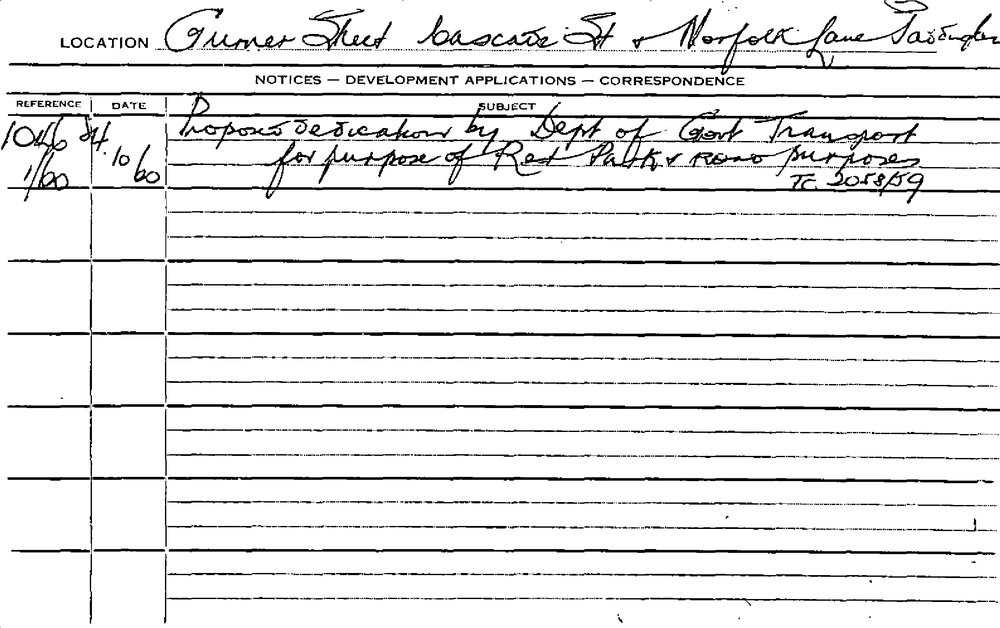 LOCATION Gurner Street Cascade St & Norfolk Lane Paddington
NOTICES — DEVELOPMENT APPLICATIONS — CORRESPONDENCE
REFERENCE DATE SUBJECT
1046 24. Proposed dedication by Dept of Govt Transport
1/60 10 60 for purpose of Rest Park & Road purposes
TC. 2058/59